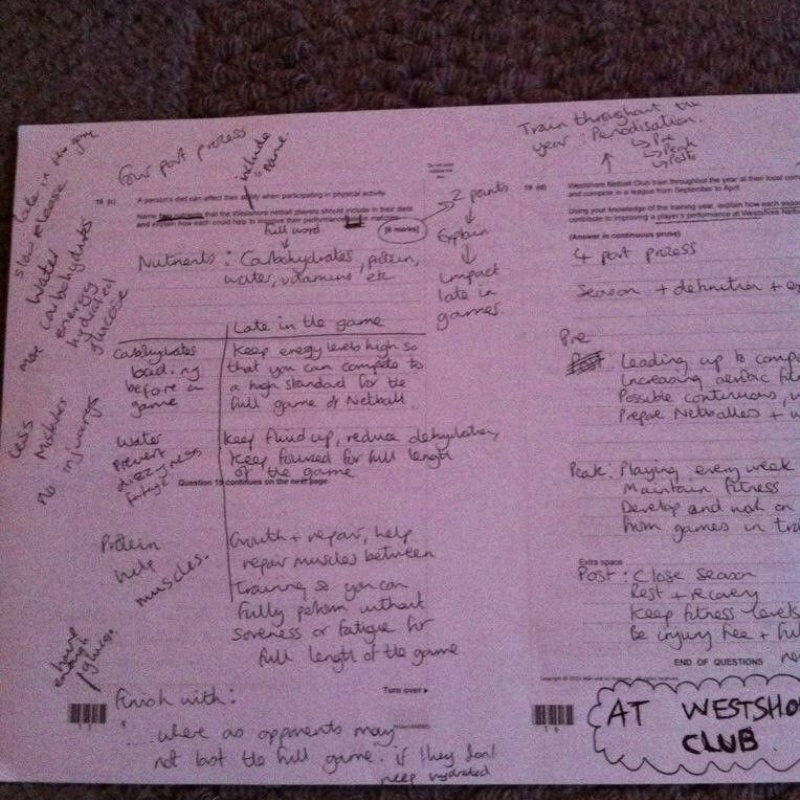 Four part prozess
include name.
late in the game
slow release
Water
more carbohydrates
energy
hydrated
glucose
less
Mistakes
no injuarys
19 (c)
A person's diet can affect their when participating in physical activity.
Name two nutrients that the Westshore Netball players should include in their diets
and explain how each could help to improve their performance matches.
[6 marks]
full word
2 points
Explain
impact
late in
games.
Nutrients : Carbohydrates, protein,
water, vitamins etc.
Late in the game
Carbohydrates
loading
before a
game
Keep energy levels high so
that you can compete to
a high standard for the
full game of Netball.
Water
Prevent
dizzyness
fatigue
Keep fluid up, reduce dehydration,
Keep focused for full length
of the game
Question 19 continues on the next page
Protein
help
muscles.
Growth + repair, help
repair muscles between
training so you can
fully perform without
soreness or fatigue for
full length of the game
have
enough
glucose.
Turn over
Finish with :
" where as opponents may
not last the full game. if they don't
keep hydrated
Train throughout the
year : Periodisation.
Pre
Peak
Posts
19 (d)
Westshore Netball Club train throughout the year at their local
and compete in a league from September to April.
Using your knowledge of the training year, explain how each
contribute to improving a player's performance at Westshore
(Answer in continuous prose)
4 part prozess
Season + definition +
Pre
Post
Leading up to
Increasing aerobic
Possible continuous,
Prepare Netballers +
Peak. Playing every week
Maintain fitness
Develop and work on
from games in
Extra space
Post : Close season
Rest + recovery
Keep fitness levels
Be injury free +
END OF QUESTIONS
AT WESTSHO
CLUB